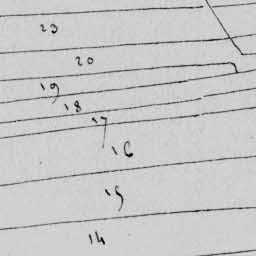 23
20
19
18
17
16
15
14